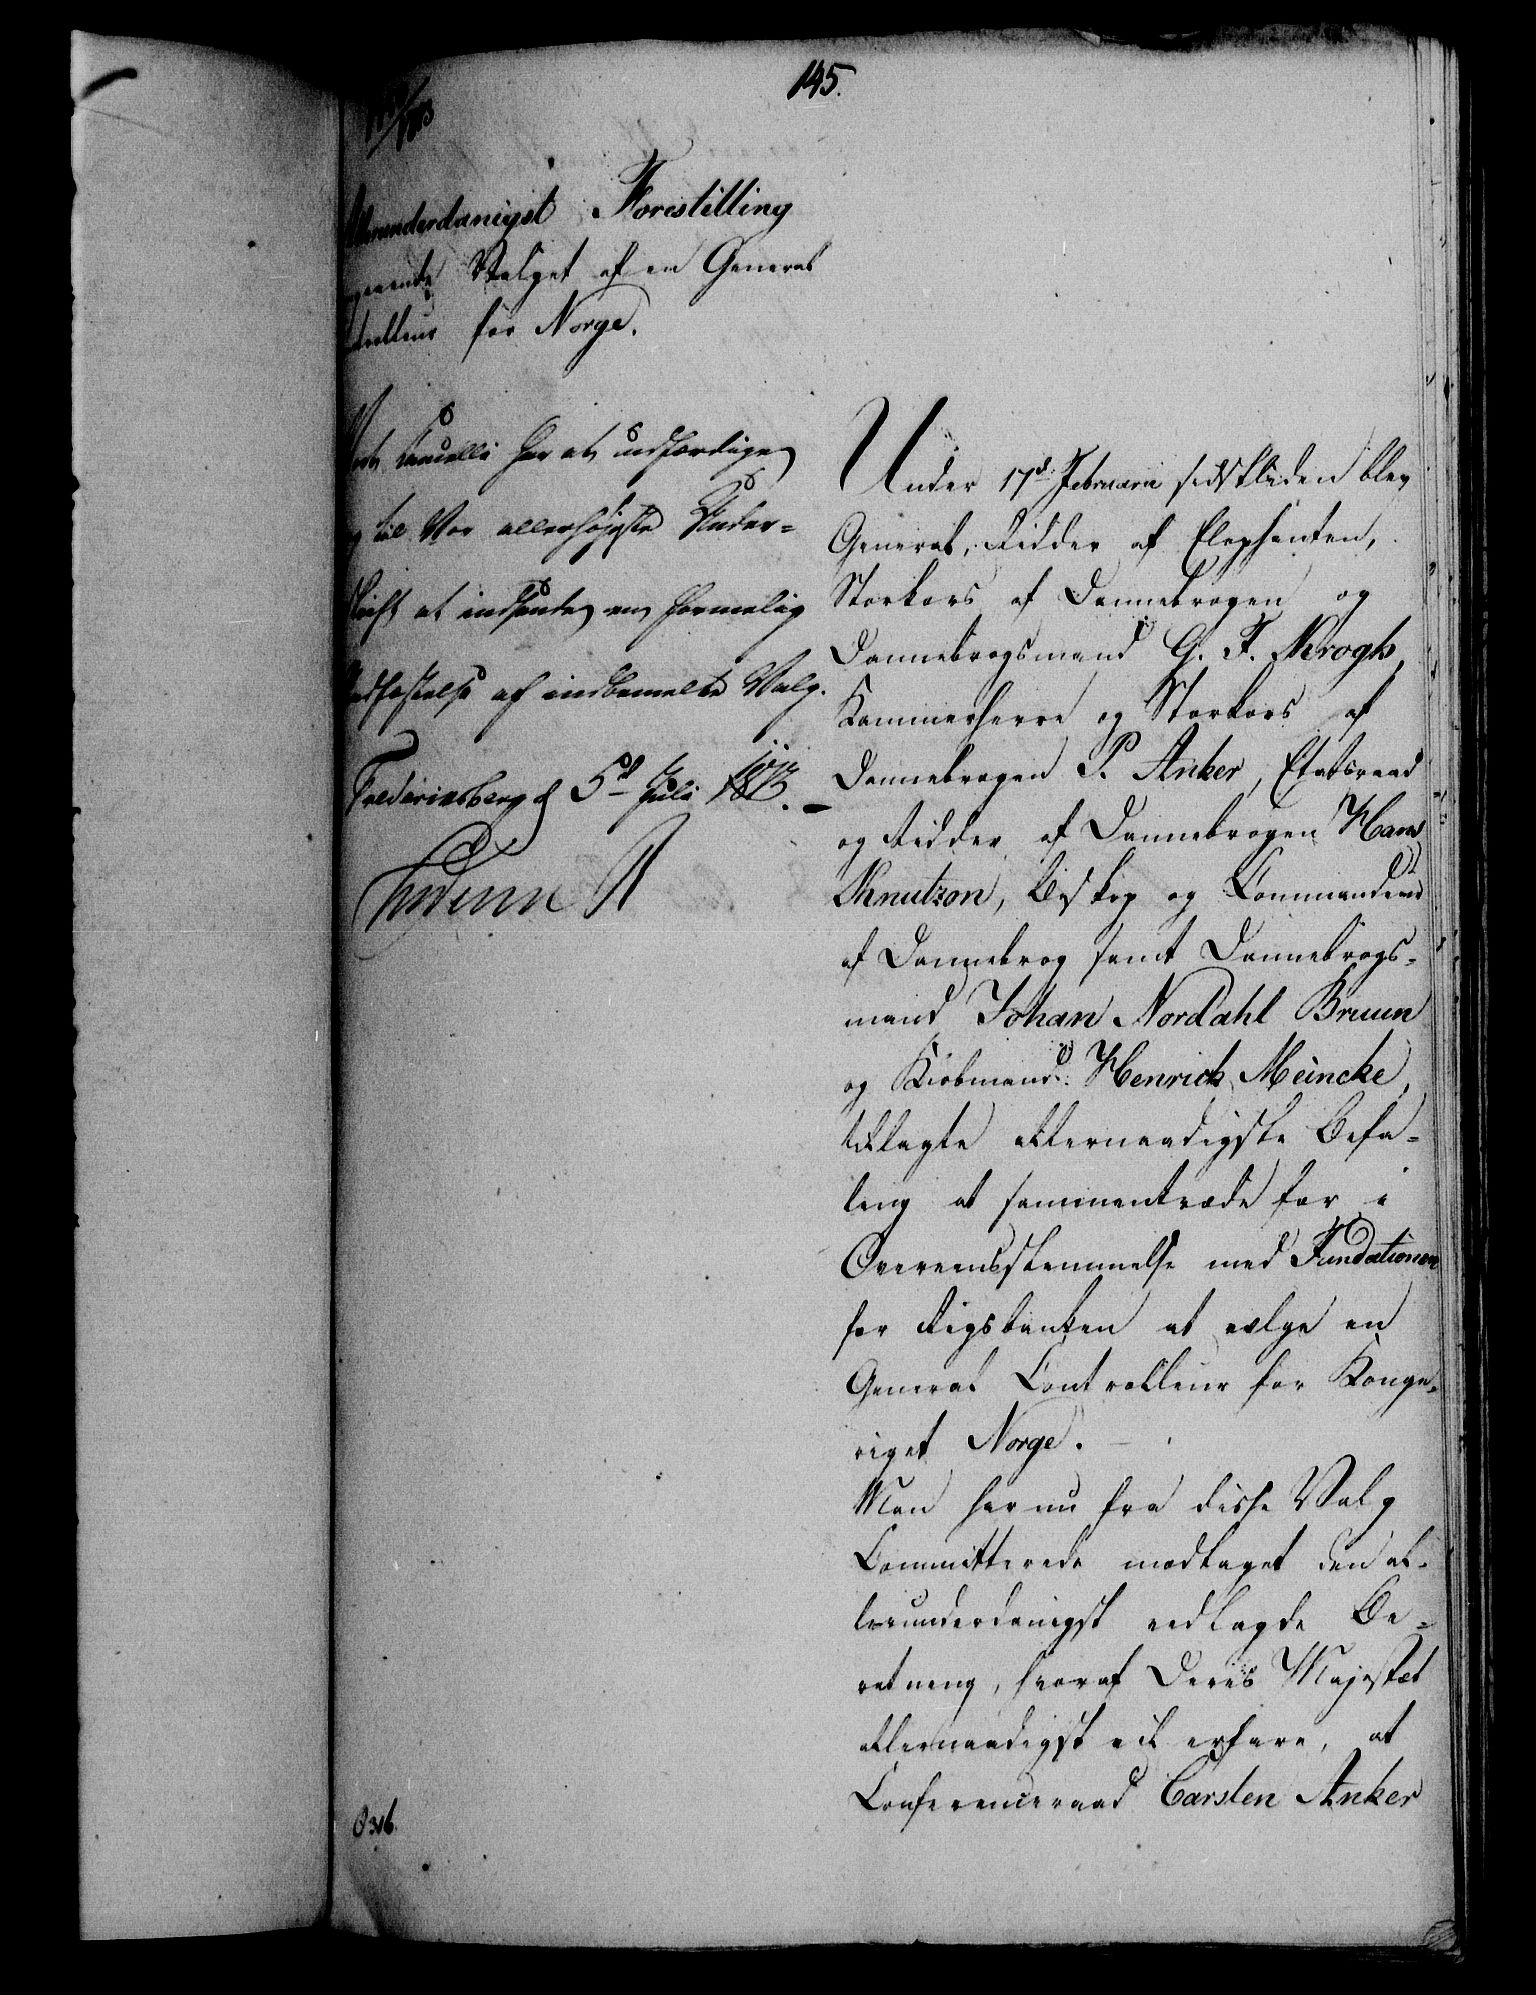 145.
Allerunderdanigst Forestilling
Valget af en General
for Norge.
Vort Cancellie har at udfærdige
og til Vor allerhøjeste Under-
skrift at indsende en formelig
Stadfæstelse af indbemeldte Valg.
Frederiksberg d 5d Juli 1813.
Frederik R
Under 17d Februarii sidstleden blev
General, Ridder af Elephanten,
Storkors af Dannebrogen og
Dannebrogsmand G. F. Krogh,
Kammerherre og Storkors af
Dannebrogen P. Anker, Etatsraad
og Ridder af Dannebrogen Hans
Knutzon, Biskop og Commandeur
af Dannebrog samt Dannebrogs-
mand Johan Nordahl Bruun
og Kiøbmand Henrich Meincke,
tillagte allernaadigste Befa-
ling at sammentræde for i
Overeensstemmelse med Fundationen
for Rigsbanken at vælge en
General Controlleur for Konge-
riget Norge.
Man har nu fra disse Valg
Committerede modtaget den al-
lerunderdanigst vedlagde Be-
retning, hvoraf Deres Majestæt
allernaadigst vil erfare, at
Conferenceraad Carsten Anker